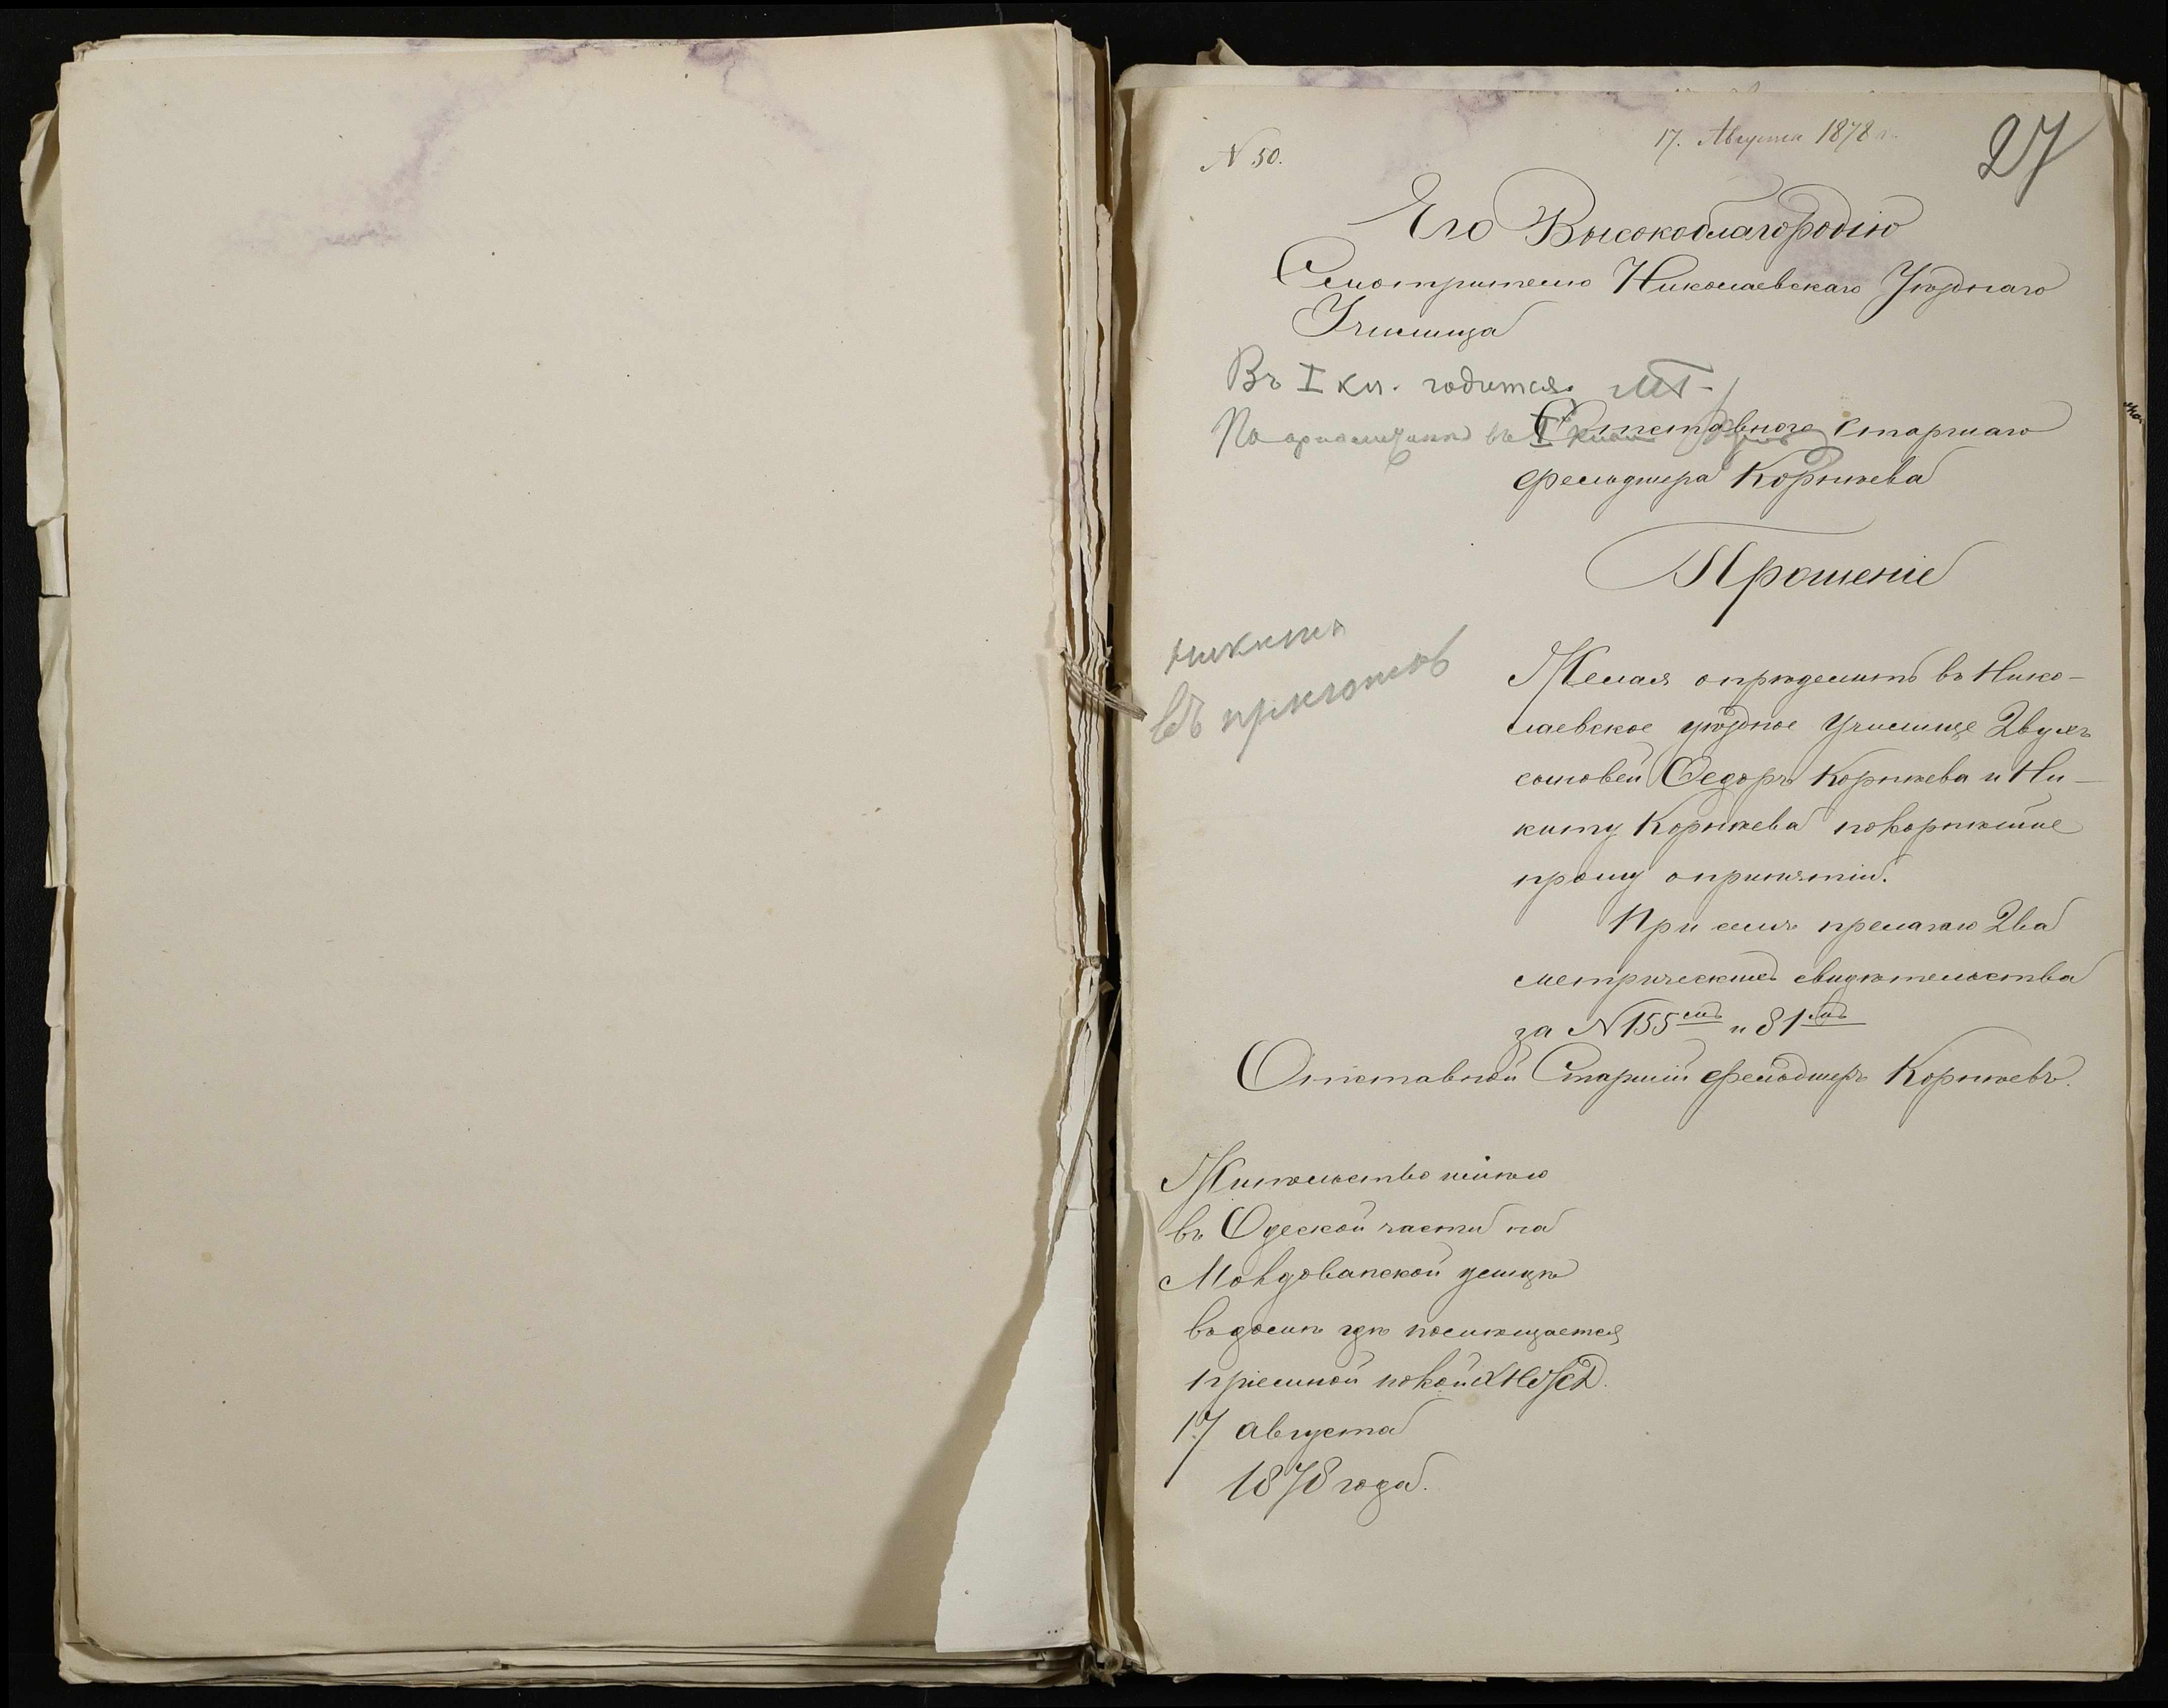 N 50.
17. Августа 1878 г.
27
Его Высокоблагородію
Смотрителю Николаевскаго Уѣзднаго
Училища
Въ I кл. годится.
По ариѳметикѣ въ I
Отставнаго старшаго
фельдшера Корнѣева
Прошеніе
Никита
въ приготов
Желая опрѣделить въ Нико-
лаевское уѣздное Училище Двухъ
сыновей Федоръ Корнѣева и Ни-
киту Корнѣева покорнѣйше
прошу опринятіи.
При семъ прелагаю Два
метрическихъ свидѣтельства
за N 155мъ и 81мъ
Отставной Старшій фельдшеръ Корнѣевъ.
Жительство имѣю
въ Одеской части на
Молдованской улицѣ
въ домѣ гдѣ помѣщается
пріемной покой
17 августа
1878 года.